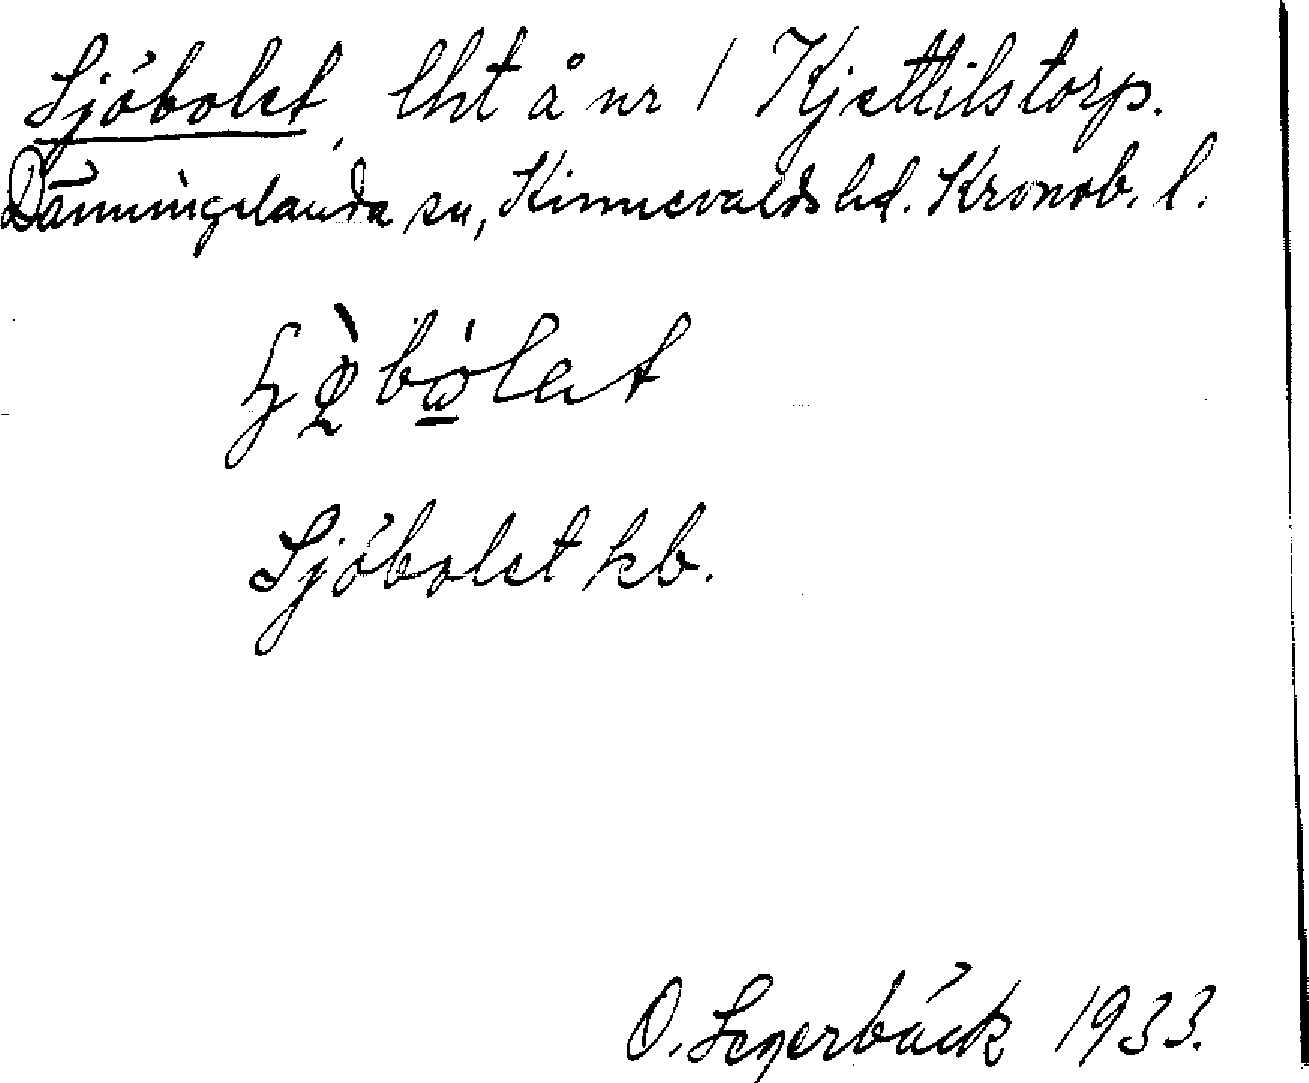 Sjöbolet, lht å nr 1 Kjettilstorp.
Dänningelanda sn, Kinnevalds hd. Kronob. l.
Sjöbolet kb.
O. Segerbäck 1933.